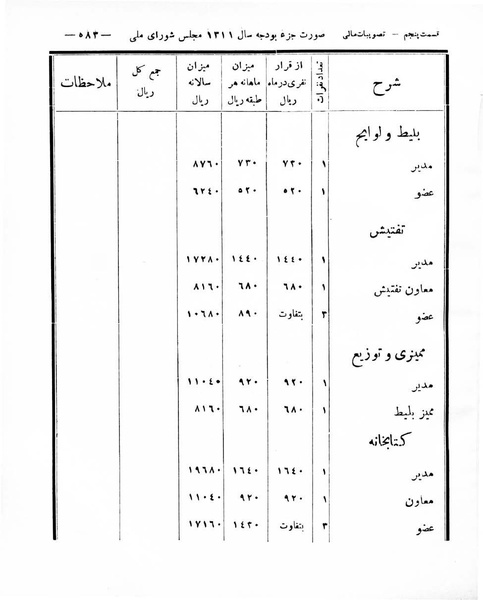 قسمت پنجم – تصویبات مالی صورت جزء بودجه سال ۱۳۱۱ مجلس شورای ملی — ۵۸۳ —
شرح تعداد نفرات از قرار نفری در ماه ریال میزان ماهانه هر طبقه ریال میزان سالانه ریال جمع کل ریال ملاحظات
بلیط و لوایح
مدیر ۱ ۷۳۰ ۷۳۰ ۸۷۶۰
عضو ۱ ۵۲۰ ۵۲۰ ۶۲٤۰
تفتیش
مدیر ۱ ۱٤٤۰ ۱٤٤۰ ۱۷۲۸۰
معاون تفتیش ۱ ۶۸۰ ۶۸۰ ۸۱۶۰
عضو ۳ بتفاوت ۸۹۰ ۱۰۶۸۰
ممیزی و توزیع
مدیر ۱ ۹۲۰ ۹۲۰ ۱۱۰٤۰
ممیز بلیط ۱ ۶۸۰ ۶۸۰ ۸۱۶۰
کتابخانه
مدیر ۱ ۱۶٤۰ ۱۶٤۰ ۱۹۶۸۰
معاون ۱ ۹۲۰ ۹۲۰ ۱۱۰٤۰
عضو ۳ بتفاوت ۱٤۳۰ ۱۷۱۶۰